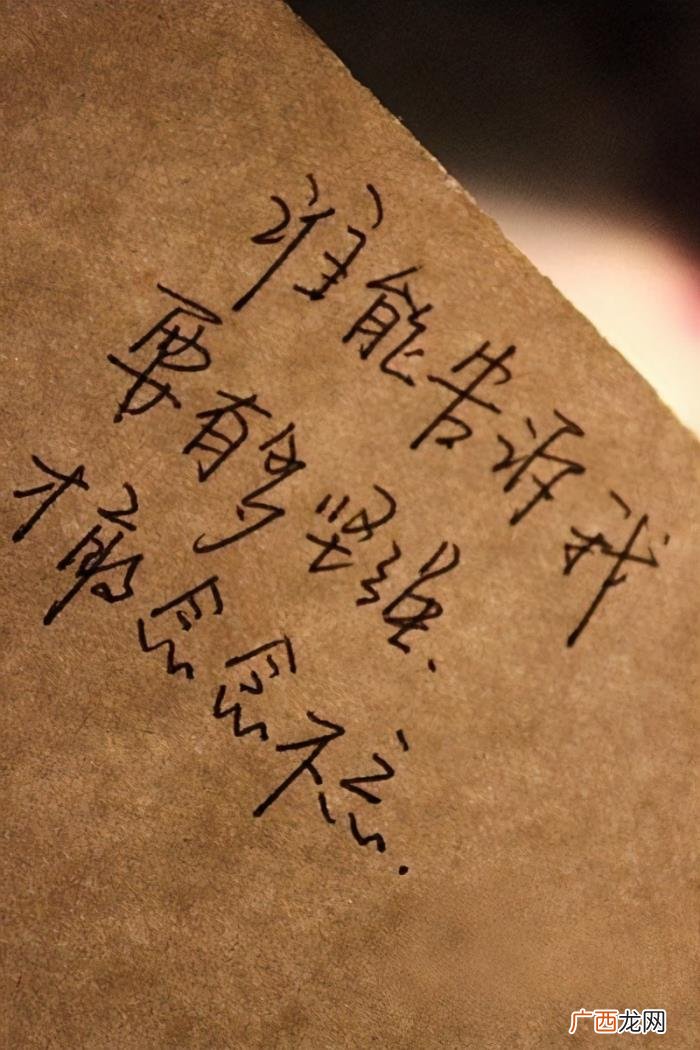 谁能告诉我
要有多坚强.
才敢念念不忘.
广西龙网